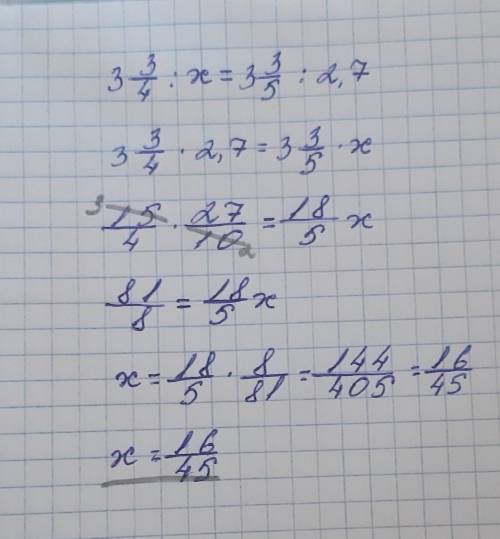 3 3/4 : x = 3 3/5 : 2,7
3 3/4 · 2,7 = 3 3/5 · x
3 15/4 · 27/10 2 = 18/5 x
81/8 = 18/5 x
x = 18/5 · 8/81 = 144/405 = 16/45
x = 16/45